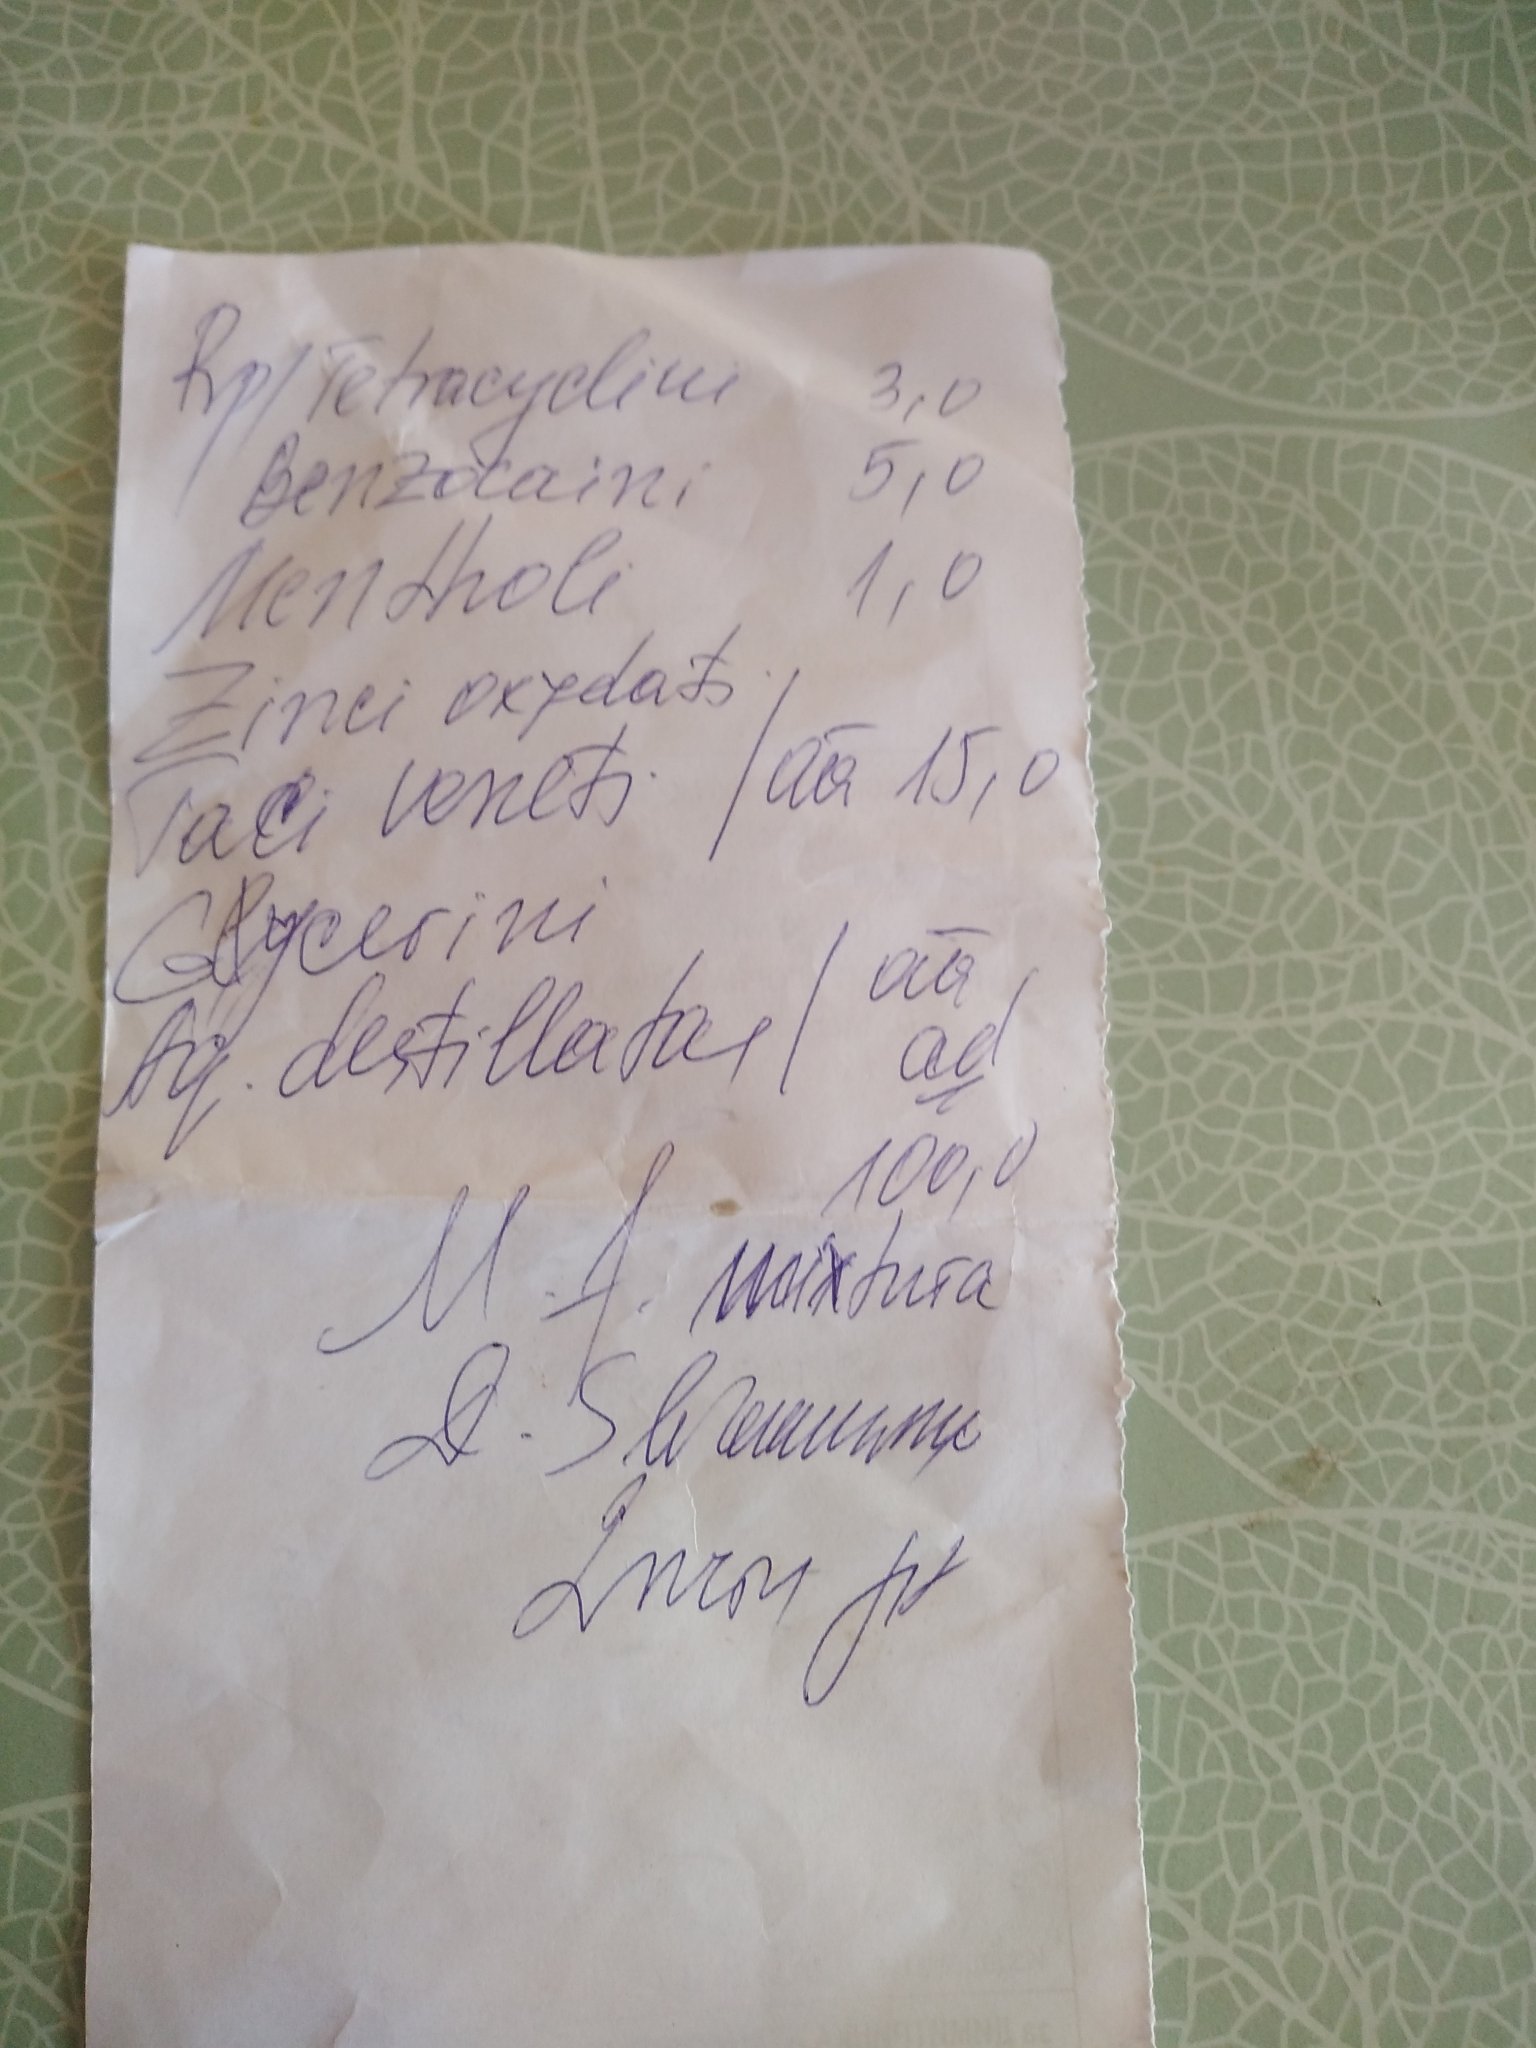 Rp/Tetracyclini 3,0
Benzocaini 5,0
Mentholi 1,0
Zinci oxydati
Talci veneti / āā 15,0
Glycerini
Aq. destillatae / āā
ad
100,0
M.f. mixtura
D.S.